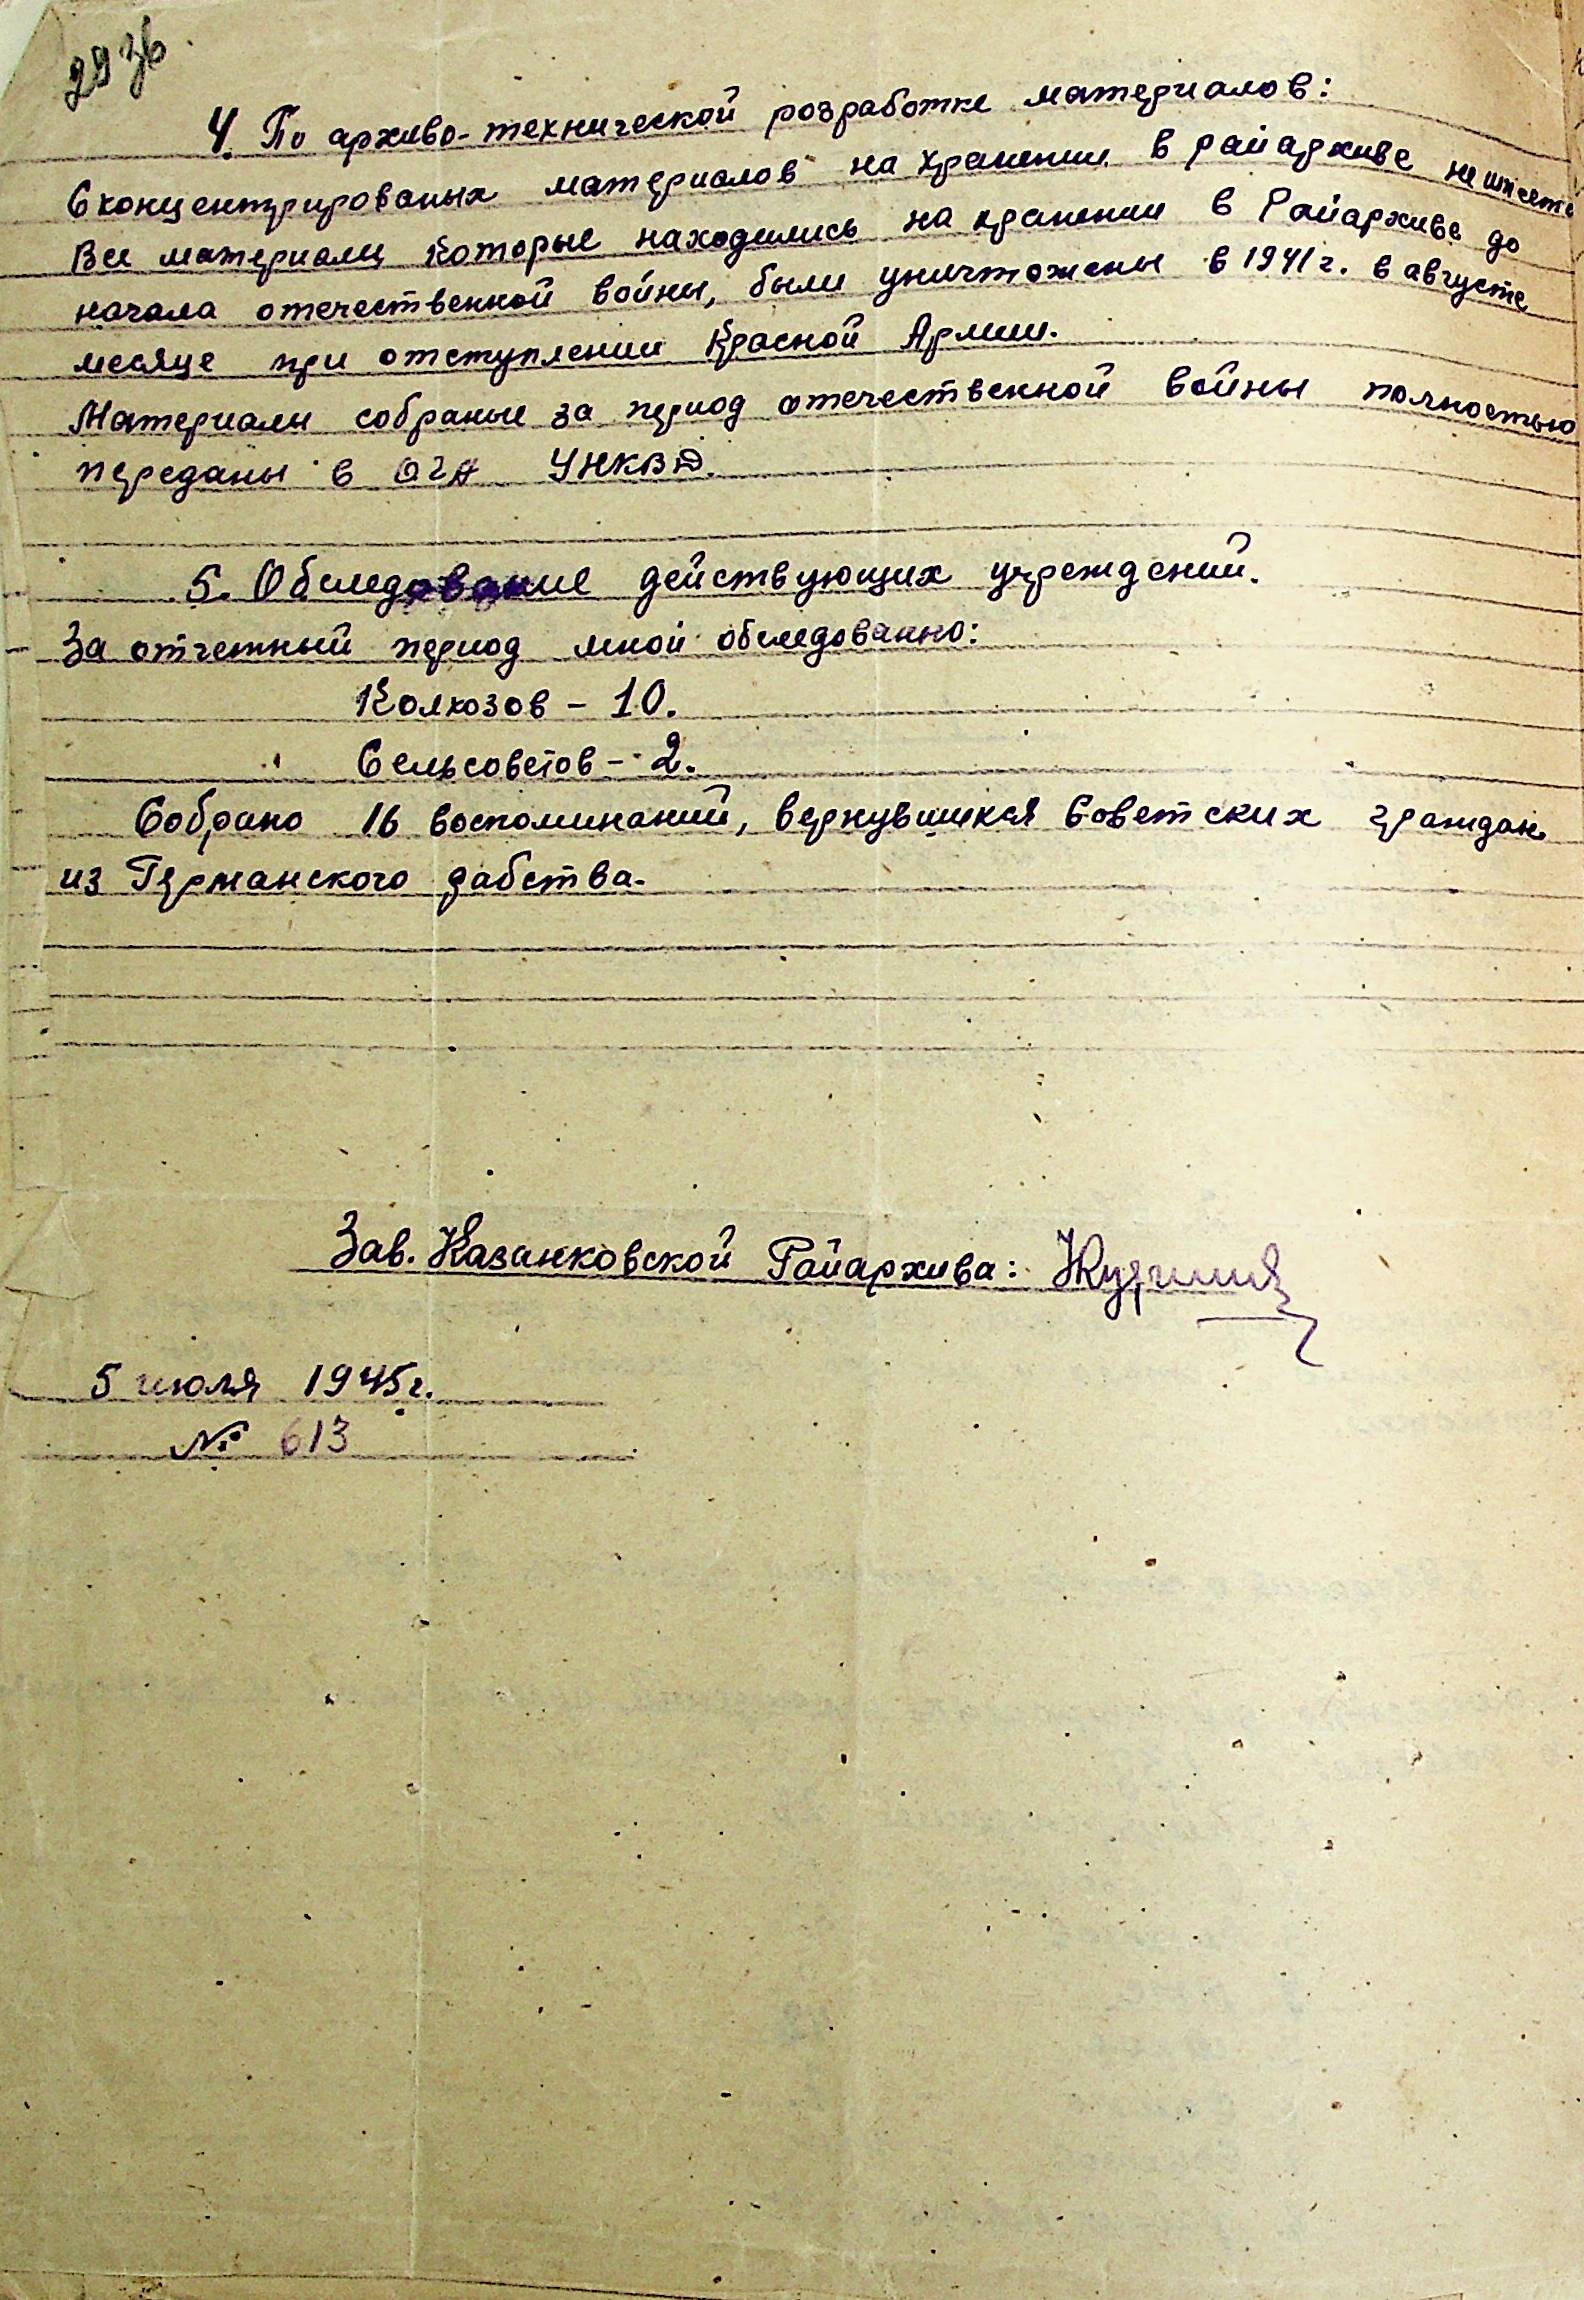 29 зв
4. По архиво-технической розработке материалов:
Сконцентрированых материалов на хранении в райархиве не имеется
Все материалы которые находились на хранении в Райархиве до
начала отечественной войны, были уничтожены в 1941 г. в августе
месяце при отступлении Красной Армии.
Материалы собраные за период отечественной войны полностью
переданы в ОГА УНКВД.
5. Обследование действующих учреждений.
За отчетный период мной обследованно:
Колхозов – 10.
Сельсоветов – 2.
Собрано 16 воспоминаний, вернувшихся Советских граждан
из Германского рабства.
Зав. Казанковской Райархива:
5 июля 1945 г.
№ 613